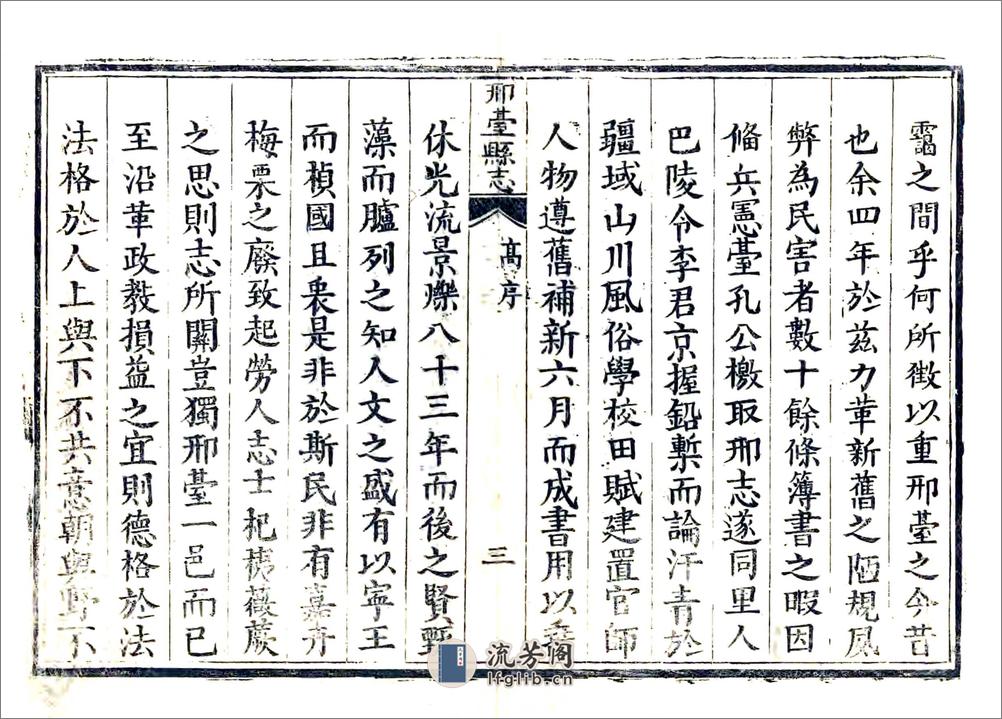 靄之間乎何所徵以重邢臺之今昔
也余四年於茲力革新舊之陋規夙
弊為民害者數十餘條簿書之暇因
俻兵憲臺孔公檄取邢志遂同里人
巴陵令李君京握鉛槧而論汗青於
疆域山川風俗學校田賦建置官師
人物遵舊補新六月而成書用以
邢臺縣志
高序
三
休光流景爍八十三年而後之賢
藻而臚列之知人文之盛有以寧王
而楨國且衷是非於斯民非有嘉卉
梅栗之廢致起勞人志士杞桋薇蕨
之思則志所關豈獨邢臺一邑而已
至沿革政教損益之宜則德格於法
法格於人上與下不共意朝與野不
流芳阁
lfglib.cn